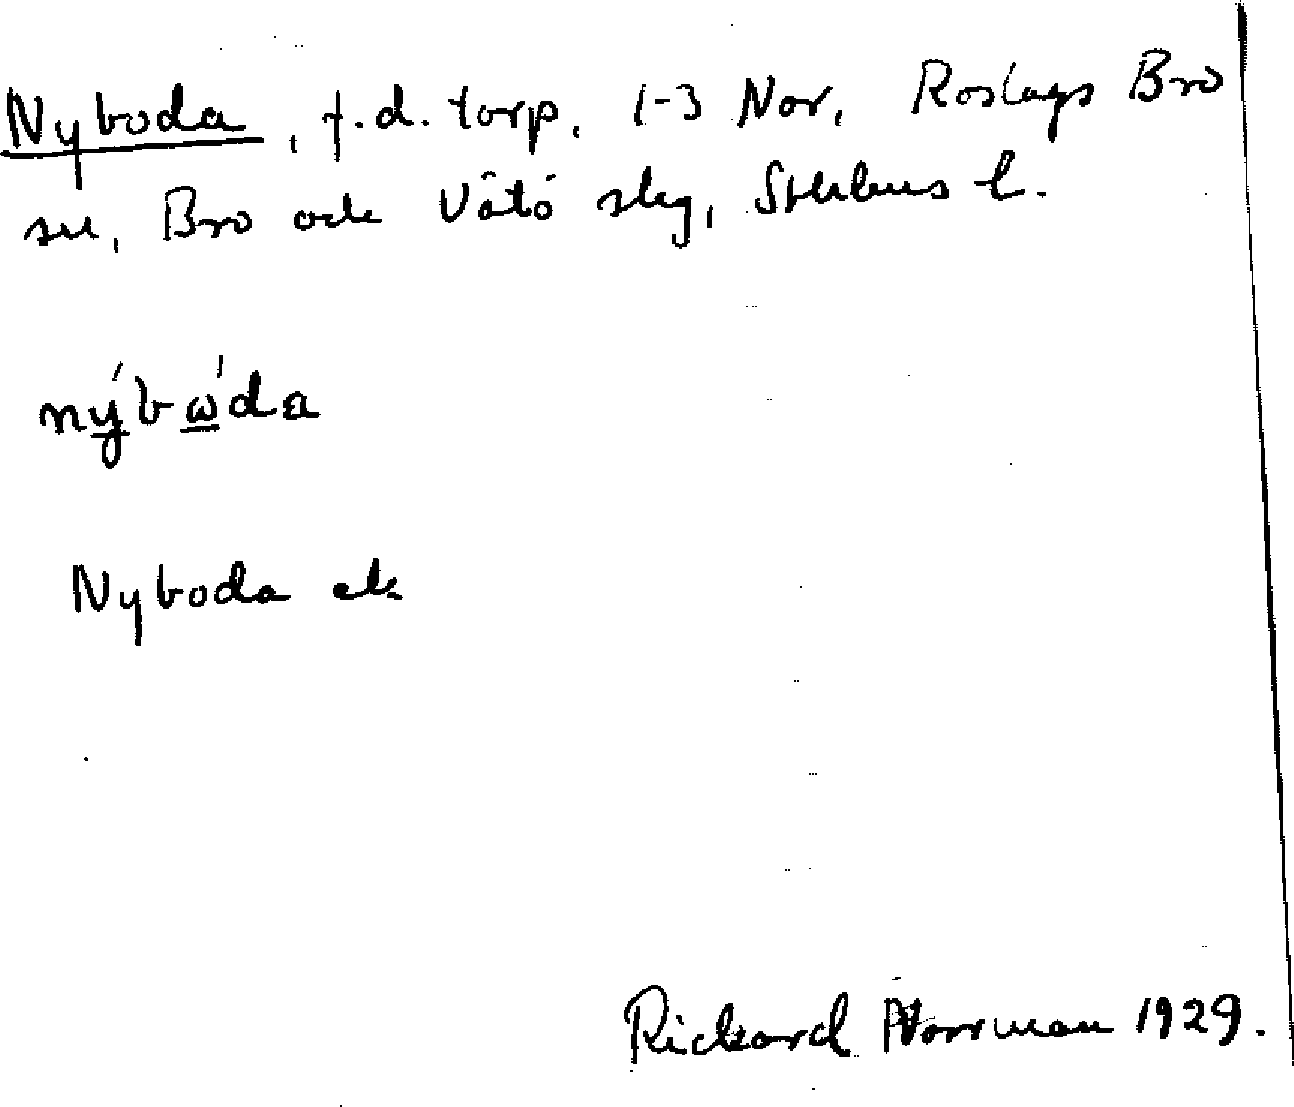 Nyboda, f.d. torp. 1-3 Nor, Roslags Bro
sn, Bro och Vätö skg, Sthlms l.
nýbώ̲da
Nyboda ek.
Rickard Norrman 1929.